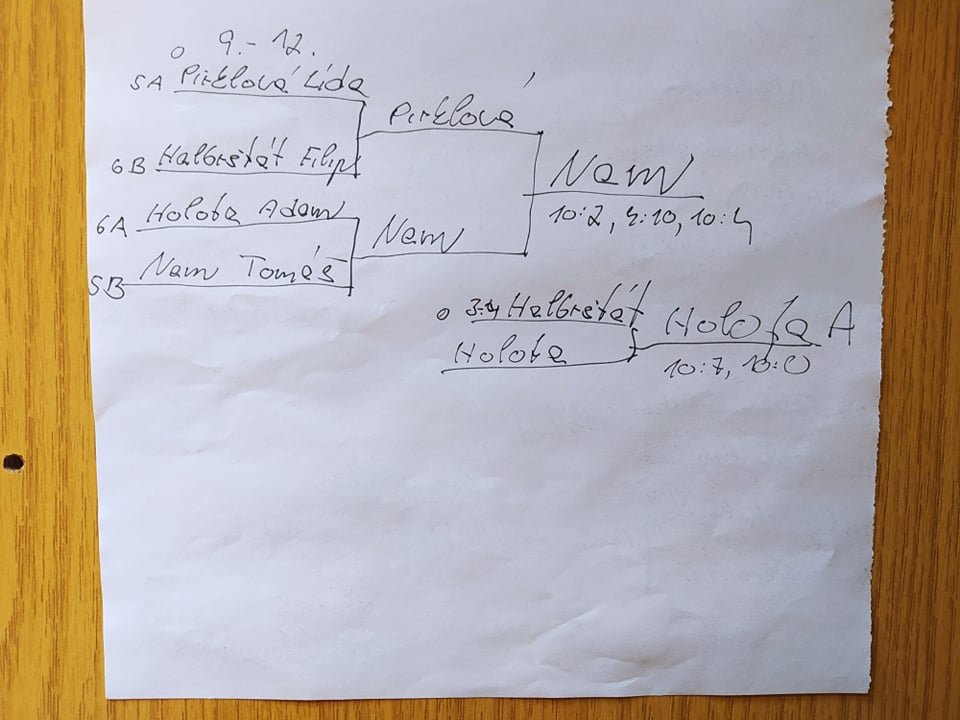 o 9.-12.
5A Pirklová Lída
Pirklová
6B Halbrštát Filip
Nam
10:2, 4:10, 10:4
6A Holota Adam
Nam
5B Nam Tomáš
o 3.-4. Halbrštát
Holota A
Holota
10:7, 10:0